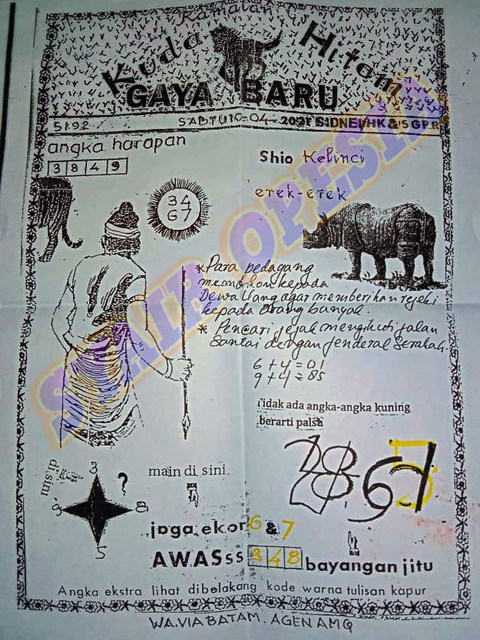 Kuda Hitam
GAYA BARU
5192
SABTU 10-04-2021 SIDNEY/HK & SGP.R
angka harapan
3 8 4 9
Shio Kelinci
erek-erek
34
67
* Para pedagang
memohon kepada
Dewa Uang agar memberikan rejeki
kepada orang banyak
* Pencari jejak mengikuti jalan
Santai dengan jenderal Serakah.
6+4=01
9+4=85
Tidak ada angka-angka kuning
berarti palsu
di sini
3
?
8
5
main di sini.
67
joga ekor 6 & 7
AWASss 3 4 8 bayangan jitu
Angka ekstra lihat dibelakang kode warna tulisan kapur
WA.VIA BATAM. AGEN AMQ